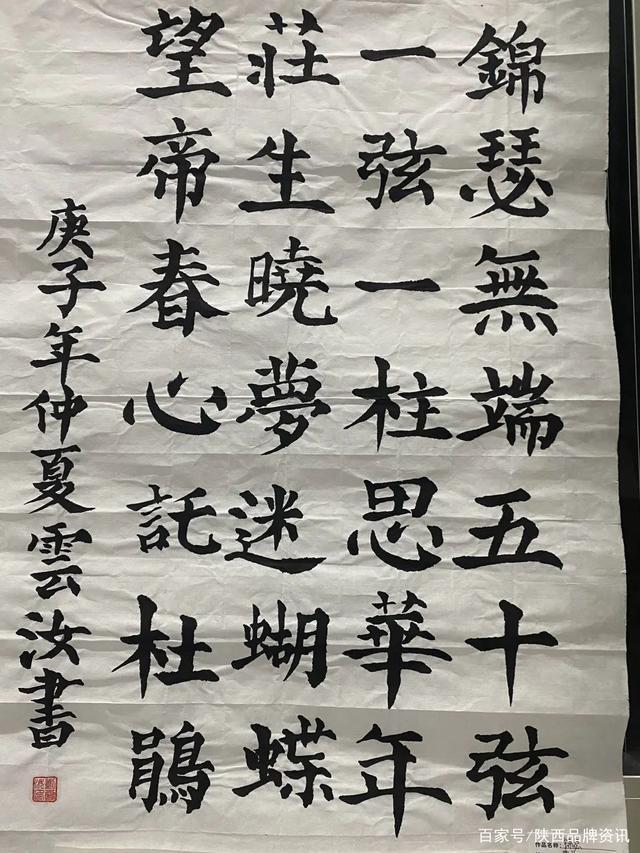 錦瑟無端五十弦
一弦一柱思華年
莊生曉夢迷蝴蝶
望帝春心託杜鵑
庚子年仲夏雲汝書
作品名称：
百家号/陕西品牌资讯